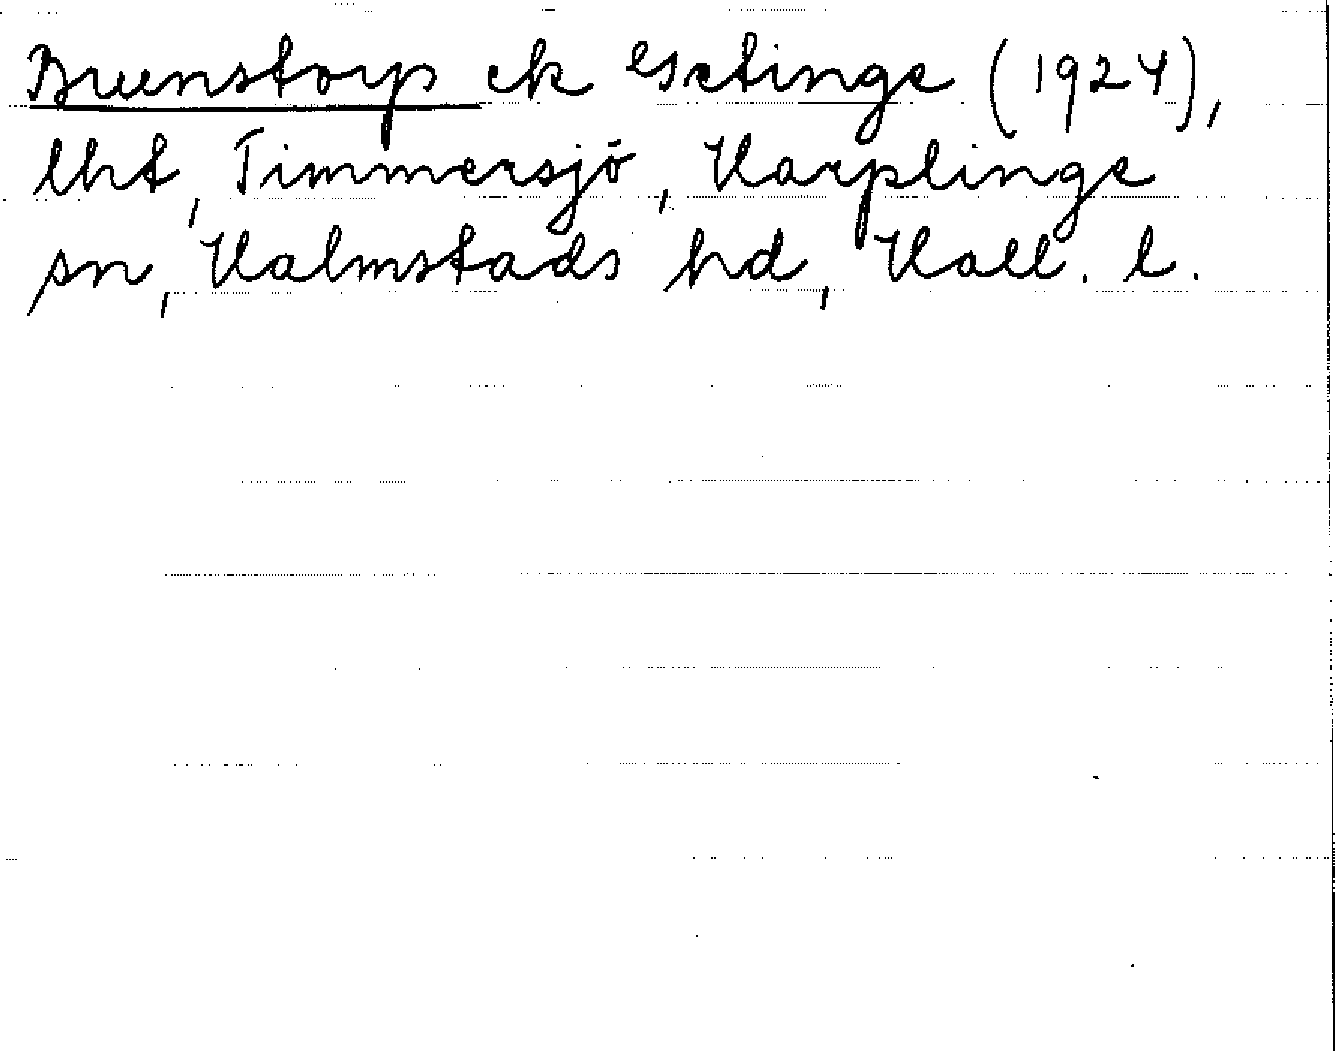 Brunstorp ek Getinge (1924),
lht, Timmersjö, Harplinge
sn, Halmstads hd, Hall. l.